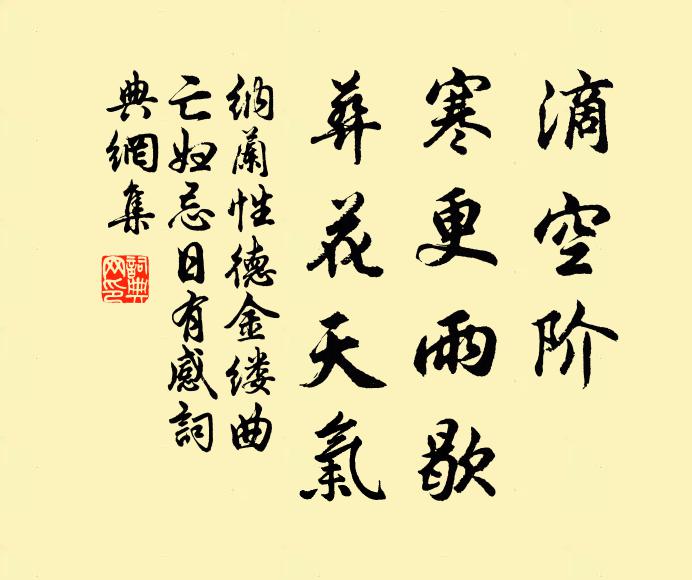 滴空阶
寒更雨歇
葬花天氣
纳蘭性德金缕曲
亡妇忌日有感詞
典網集
詞典網印